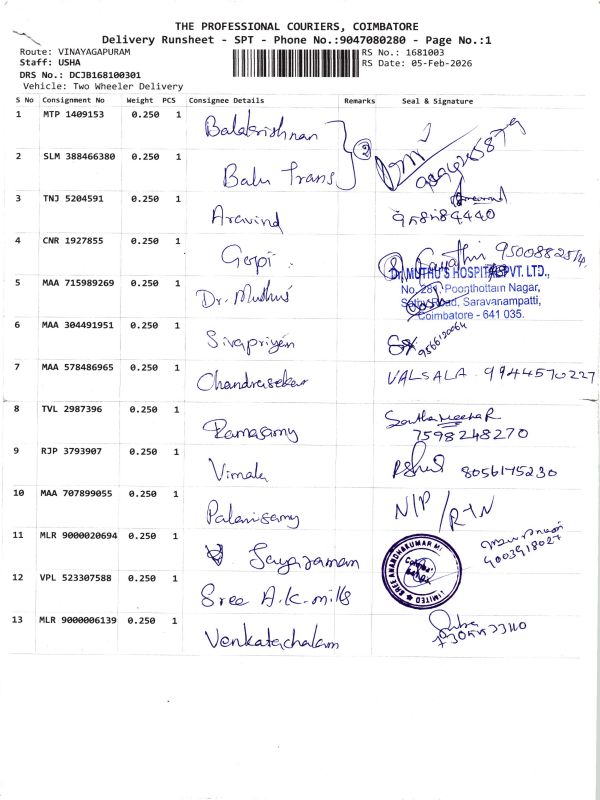 THE PROFESSIONAL COURIERS, COIMBATORE
Delivery Runsheet - SPT - Phone No.:9047080280 - Page No.:1
Route: VINAYAGAPURAM
RS No.: 1681003
Staff: USHA
RS Date: 05-Feb-2026
DRS No.: DCJB168100301
Vehicle: Two Wheeler Delivery
S No Consignment No Weight PCS Consignee Details Remarks Seal & Signature
1 MTP 1409153 0.250 1 Balakrishnan
2 SLM 388466380 0.250 1 Balu Trans 2
3 TNJ 5204591 0.250 1 Aravind
4 CNR 1927855 0.250 1 Gopi 9500882514
5 MAA 715989269 0.250 1 Dr. Muthus
Dr.MUTHU'S HOSPITAL PVT. LTD.,
No. 281, Poonthottam Nagar,
Sathy Road, Saravanampatti,
Coimbatore - 641 035.
6 MAA 304491951 0.250 1 Sivapriyan 9566120064
7 MAA 578486965 0.250 1 Chandrasekar VALSALA. 9944570227
8 TVL 2987396 0.250 1 Ramasamy
7598248270
9 RJP 3793907 0.250 1 Vimala 8056145230
10 MAA 707899055 0.250 1 Palanisamy N/P / RTN
11 MLR 9000020694 0.250 1 Jayaraman 9003918027
12 VPL 523307588 0.250 1 Sree A.K. mills
13 MLR 9000006139 0.250 1 Venkatachalam